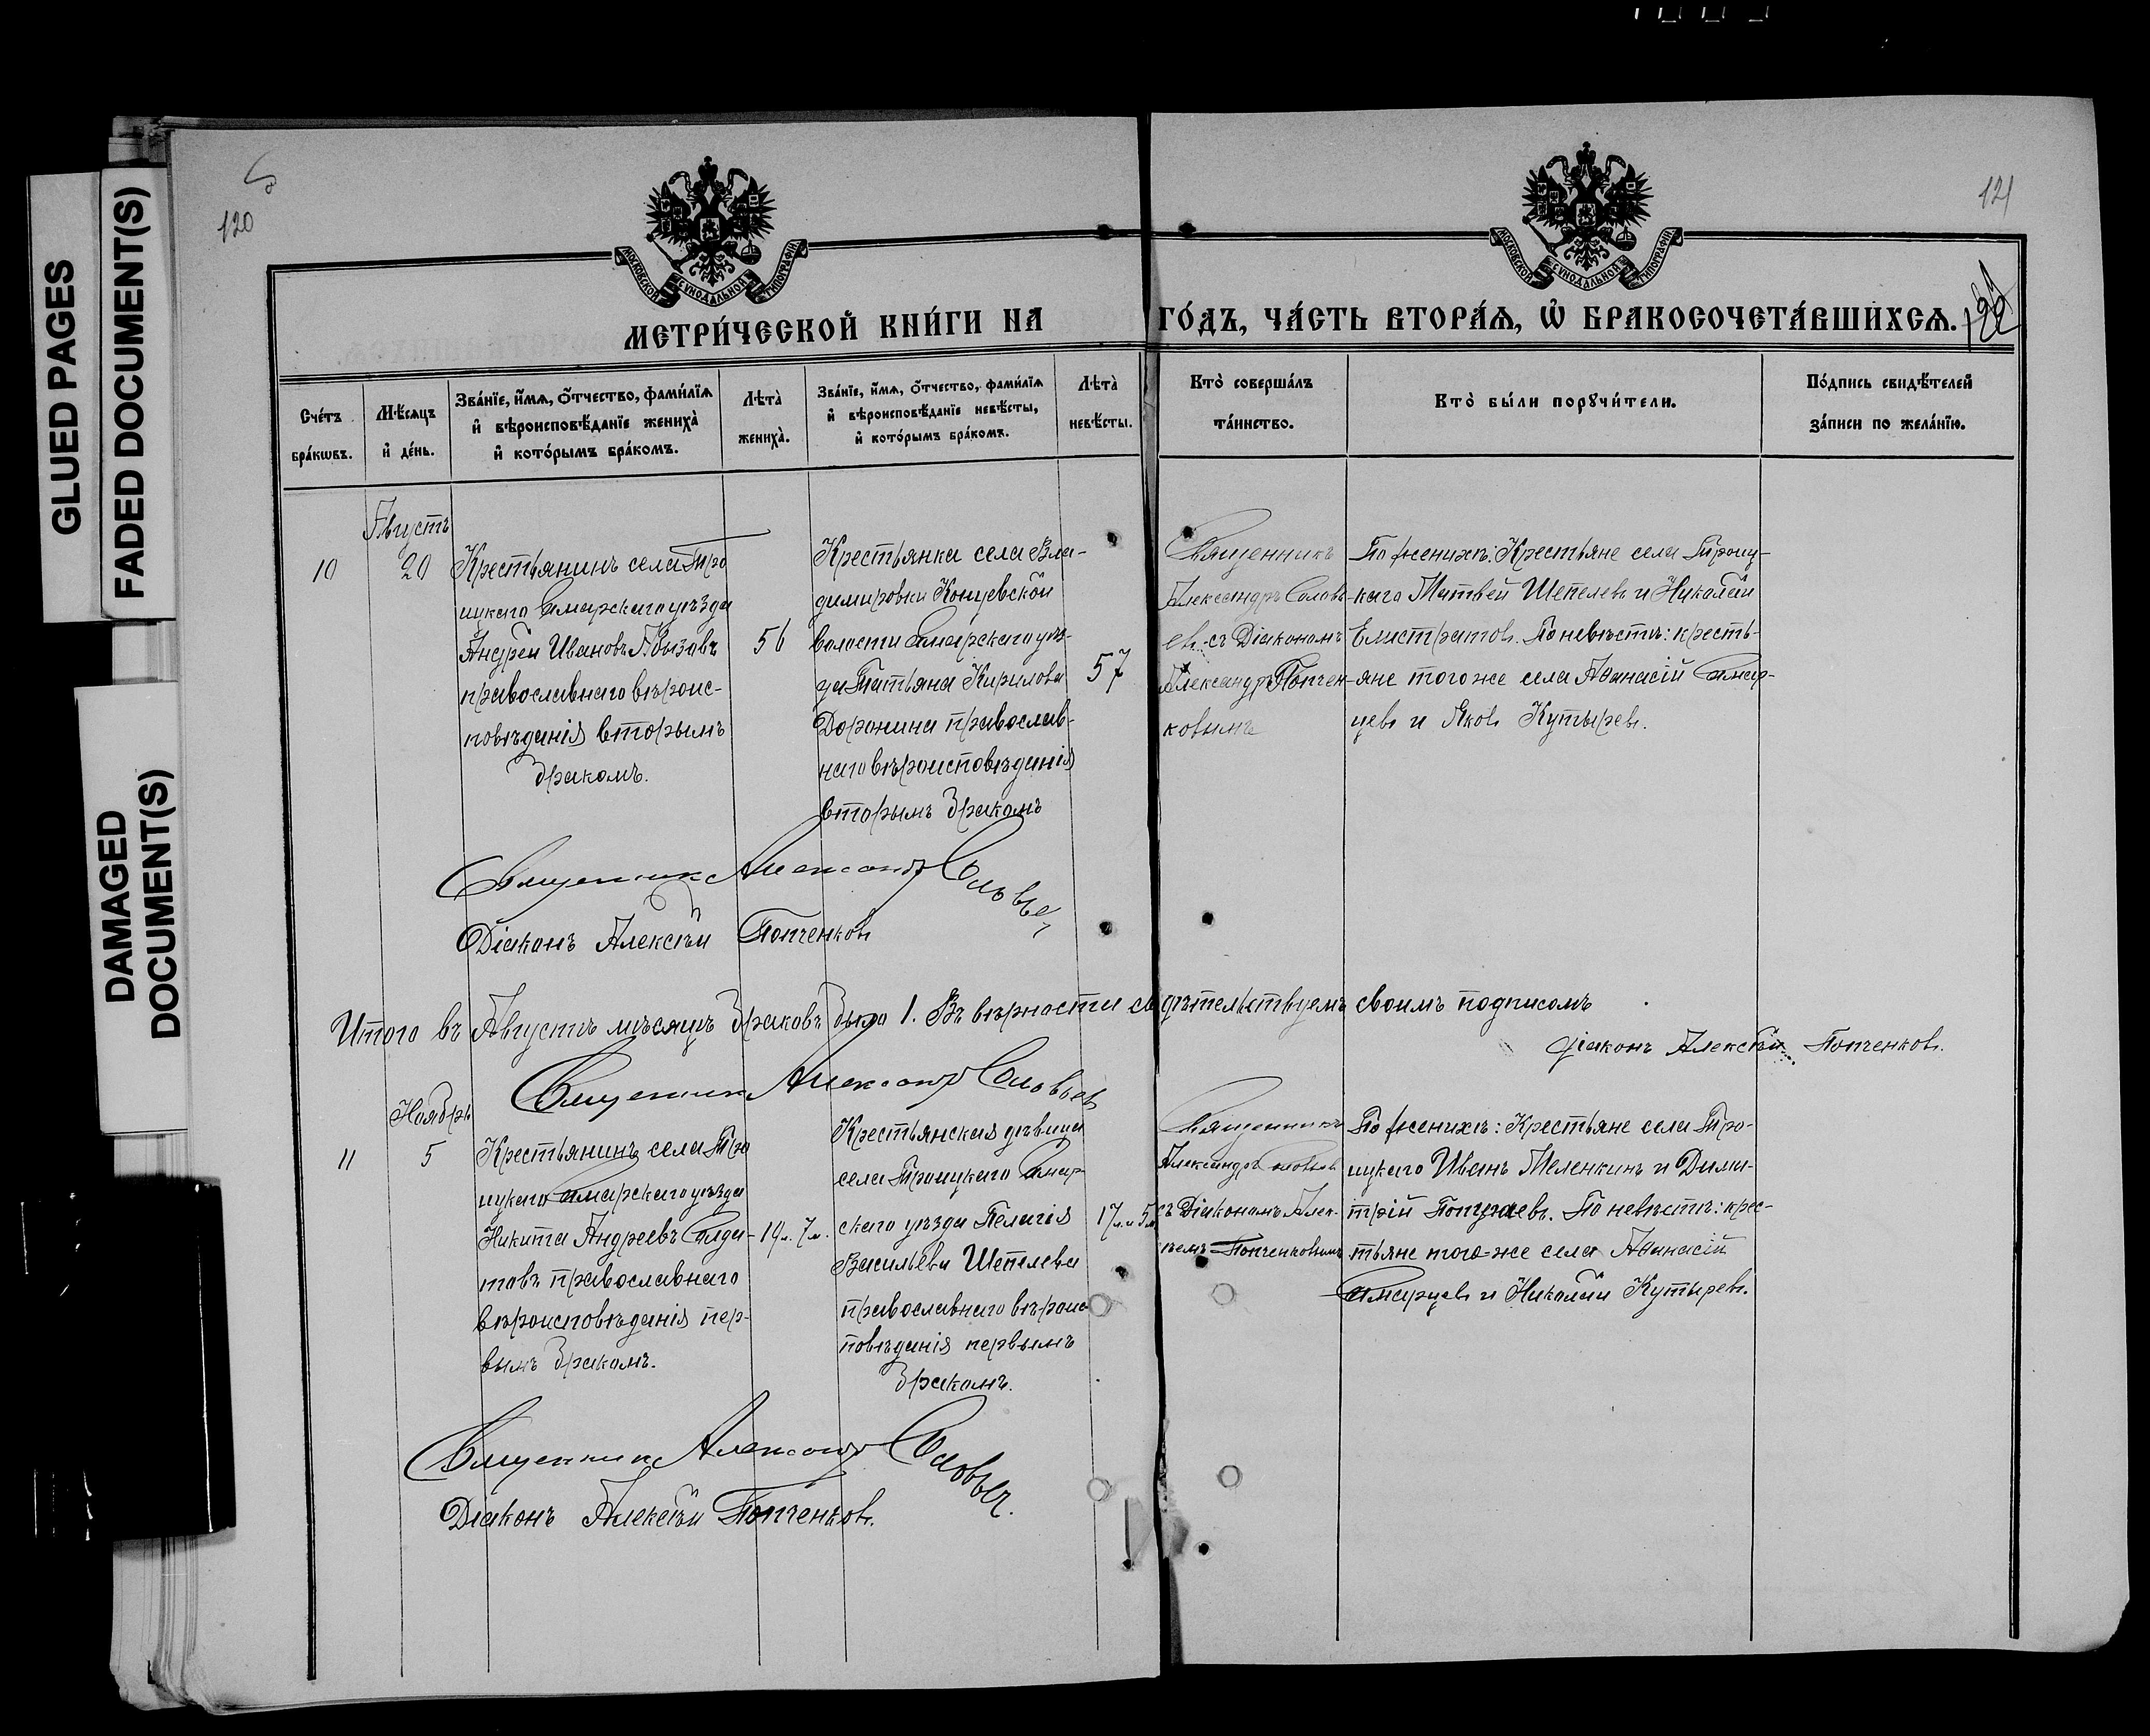 GLUED PAGES
FADED DOCUMENT(S)
DAMAGED
DOCUMENT(S)
120
121
МОСКОВСКОЙ СѴНОДАЛЬНОЙ ТИПОГРАФІИ
МОСКОВСКОЙ СѴНОДАЛЬНОЙ ТИПОГРАФІИ
МЕТРИ́ЧЕСКОЙ КНИ́ГИ НА ГО́ДЪ, ЧА́СТЬ ВТОРА́Ѧ, Ѡ҆ БРАКОСОЧЕТА́ВШИХСѦ.
Сче́тъ
бра́кѡвъ.
Мѣ́сяцъ
и҆ де́нь.
Зва́нїе, и҆́мѧ, ѻ҆́тчество, фами́лїѧ
и҆ вѣроисповѣ́данїе жениха̀
и҆ кото́рымъ бра́комъ.
Лѣта̀
жениха̀.
Зва́нїе, и҆́мѧ, ѻ҆́тчество, фами́лїѧ
и҆ вѣроисповѣ́данїе невѣ́сты,
и҆ кото́рымъ бра́комъ.
Лѣта̀
невѣ́сты.
Кто̀ соверша́лъ
та́инство.
Кто̀ бы́ли порꙋчи́тели.
По́дпись свидѣ́телей
за́писи по жела́нїю.
Августъ
10
20
Крестьянинъ села Тро
ицкаго Самарскаго уѣзда
Андрей Ивановъ
православнаго вѣроис-
повѣданія вторымъ
бракомъ.
56
Крестьянка села Вла-
димировки
волости Самарскаго уѣз-
да Татьяна Кирилова
Доронина православ-
наго вѣроисповѣданія
вторымъ бракомъ
57
Священникъ
Александръ Соловь-
евъ съ Діакономъ
Александр Попчен-
ковымъ
По женихѣ: Крестьяне села Троиц-
каго Матвей Шепелевъ и Николай
Елистратовъ. По невѣстѣ: кресть-
яне того же села Аѳанасій Самар-
цевъ и Яковъ Кутыревъ.
Священник Александр Соловьев
Діаконъ Алексѣй Попченковъ
Итого въ Августѣ мѣсяцѣ браковъ было 1. Въ вѣрности свидѣтельствуемъ своимъ подписомъ
Діаконъ Алексѣй Попченковъ.
Священник Александр Соловьев
Ноябрь
11
5
Крестьянинъ села Тро
ицкаго Самарскаго уѣзда
Никита Андреевъ Салда-
товъ православнаго
вѣроисповѣданія пер-
вымъ бракомъ.
19 л. 7 м.
Крестьянская дѣвица
села Троицкаго Самар
скаго уѣзда Пелагія
Васильева Шепелева
православнаго вѣроис
повѣданія первымъ
бракомъ.
17 л. и 5 м.
Священникъ
Александръ Соловьевъ
съ Діакономъ Алек-
ѣемъ Попченковымъ
По женихѣ: Крестьяне села Тро-
ицкаго Иванъ Меленкинъ и Дими-
трій Попугаевъ. По невѣстѣ: крес-
тьяне того-же села Аѳанасій
Самарцевъ и Николай Кутыревъ.
Священник Александр Соловьев.
Діаконъ Алексѣй Попченковъ.